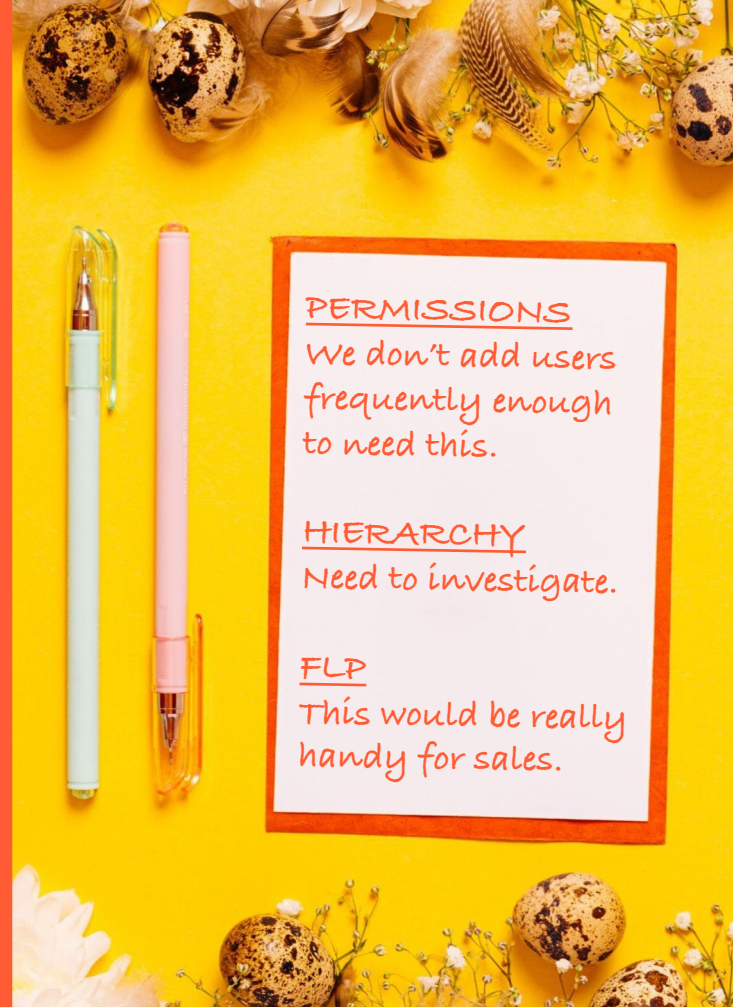 PERMISSIONS
We don't add users
frequently enough
to need this.
HIERARCHY
Need to investigate.
FLP
This would be really
handy for sales.